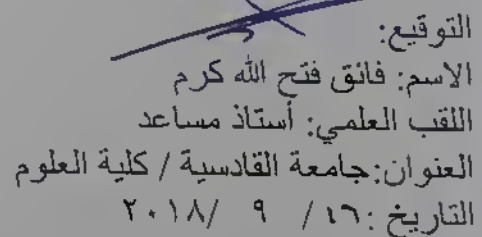 التوقيع:
الاسم: فائق فتح الله كرم
اللقب العلمي: أستاذ مساعد
العنوان:جامعة القادسية / كلية العلوم
التاريخ :٢٦ / ٩ /٢٠١٨